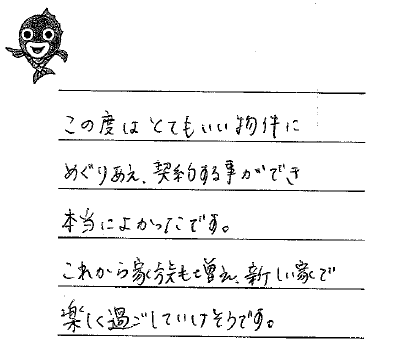 この度はとてもいい物件に
めぐりあえ、契約する事ができ
本当によかったです。
これから家族も増え、新しい家で
楽しく過ごしていけそうです。